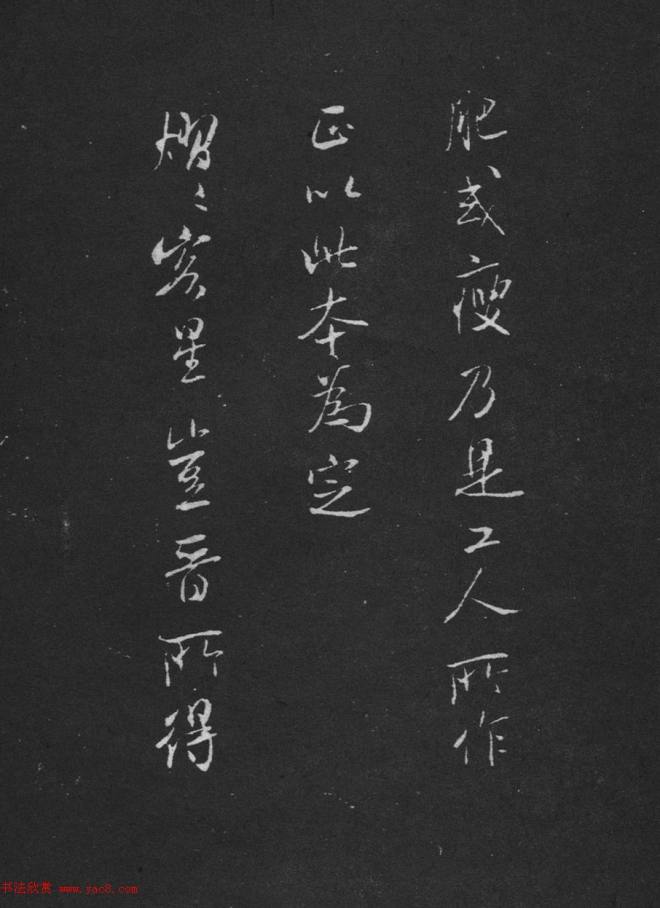 肥或瘦乃是工人所作
正以此本为定
熠〻客星岂晋所得
书法欣赏 www.yac8.com